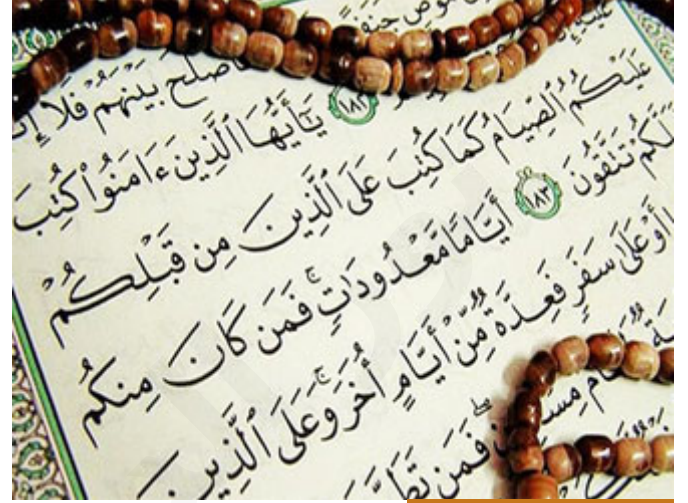 مُّوصٍ جَنَفًا
فَأَصْلَحَ بَيْنَهُمْ فَلَآ إِثْمَ
عَلَيْهِ ١٨٢ يَٰٓأَيُّهَا ٱلَّذِينَ ءَامَنُوا۟ كُتِبَ
عَلَيْكُمُ ٱلصِّيَامُ كَمَا كُتِبَ عَلَى ٱلَّذِينَ مِن قَبْلِكُمْ
لَعَلَّكُمْ تَتَّقُونَ ١٨٣ أَيَّامًا مَّعْدُودَٰتٍ ۚ فَمَن كَانَ مِنكُم
أَوْ عَلَىٰ سَفَرٍ فَعِدَّةٌ مِّنْ أَيَّامٍ أُخَرَ ۚ وَعَلَى ٱلَّذِينَ
فَمَن